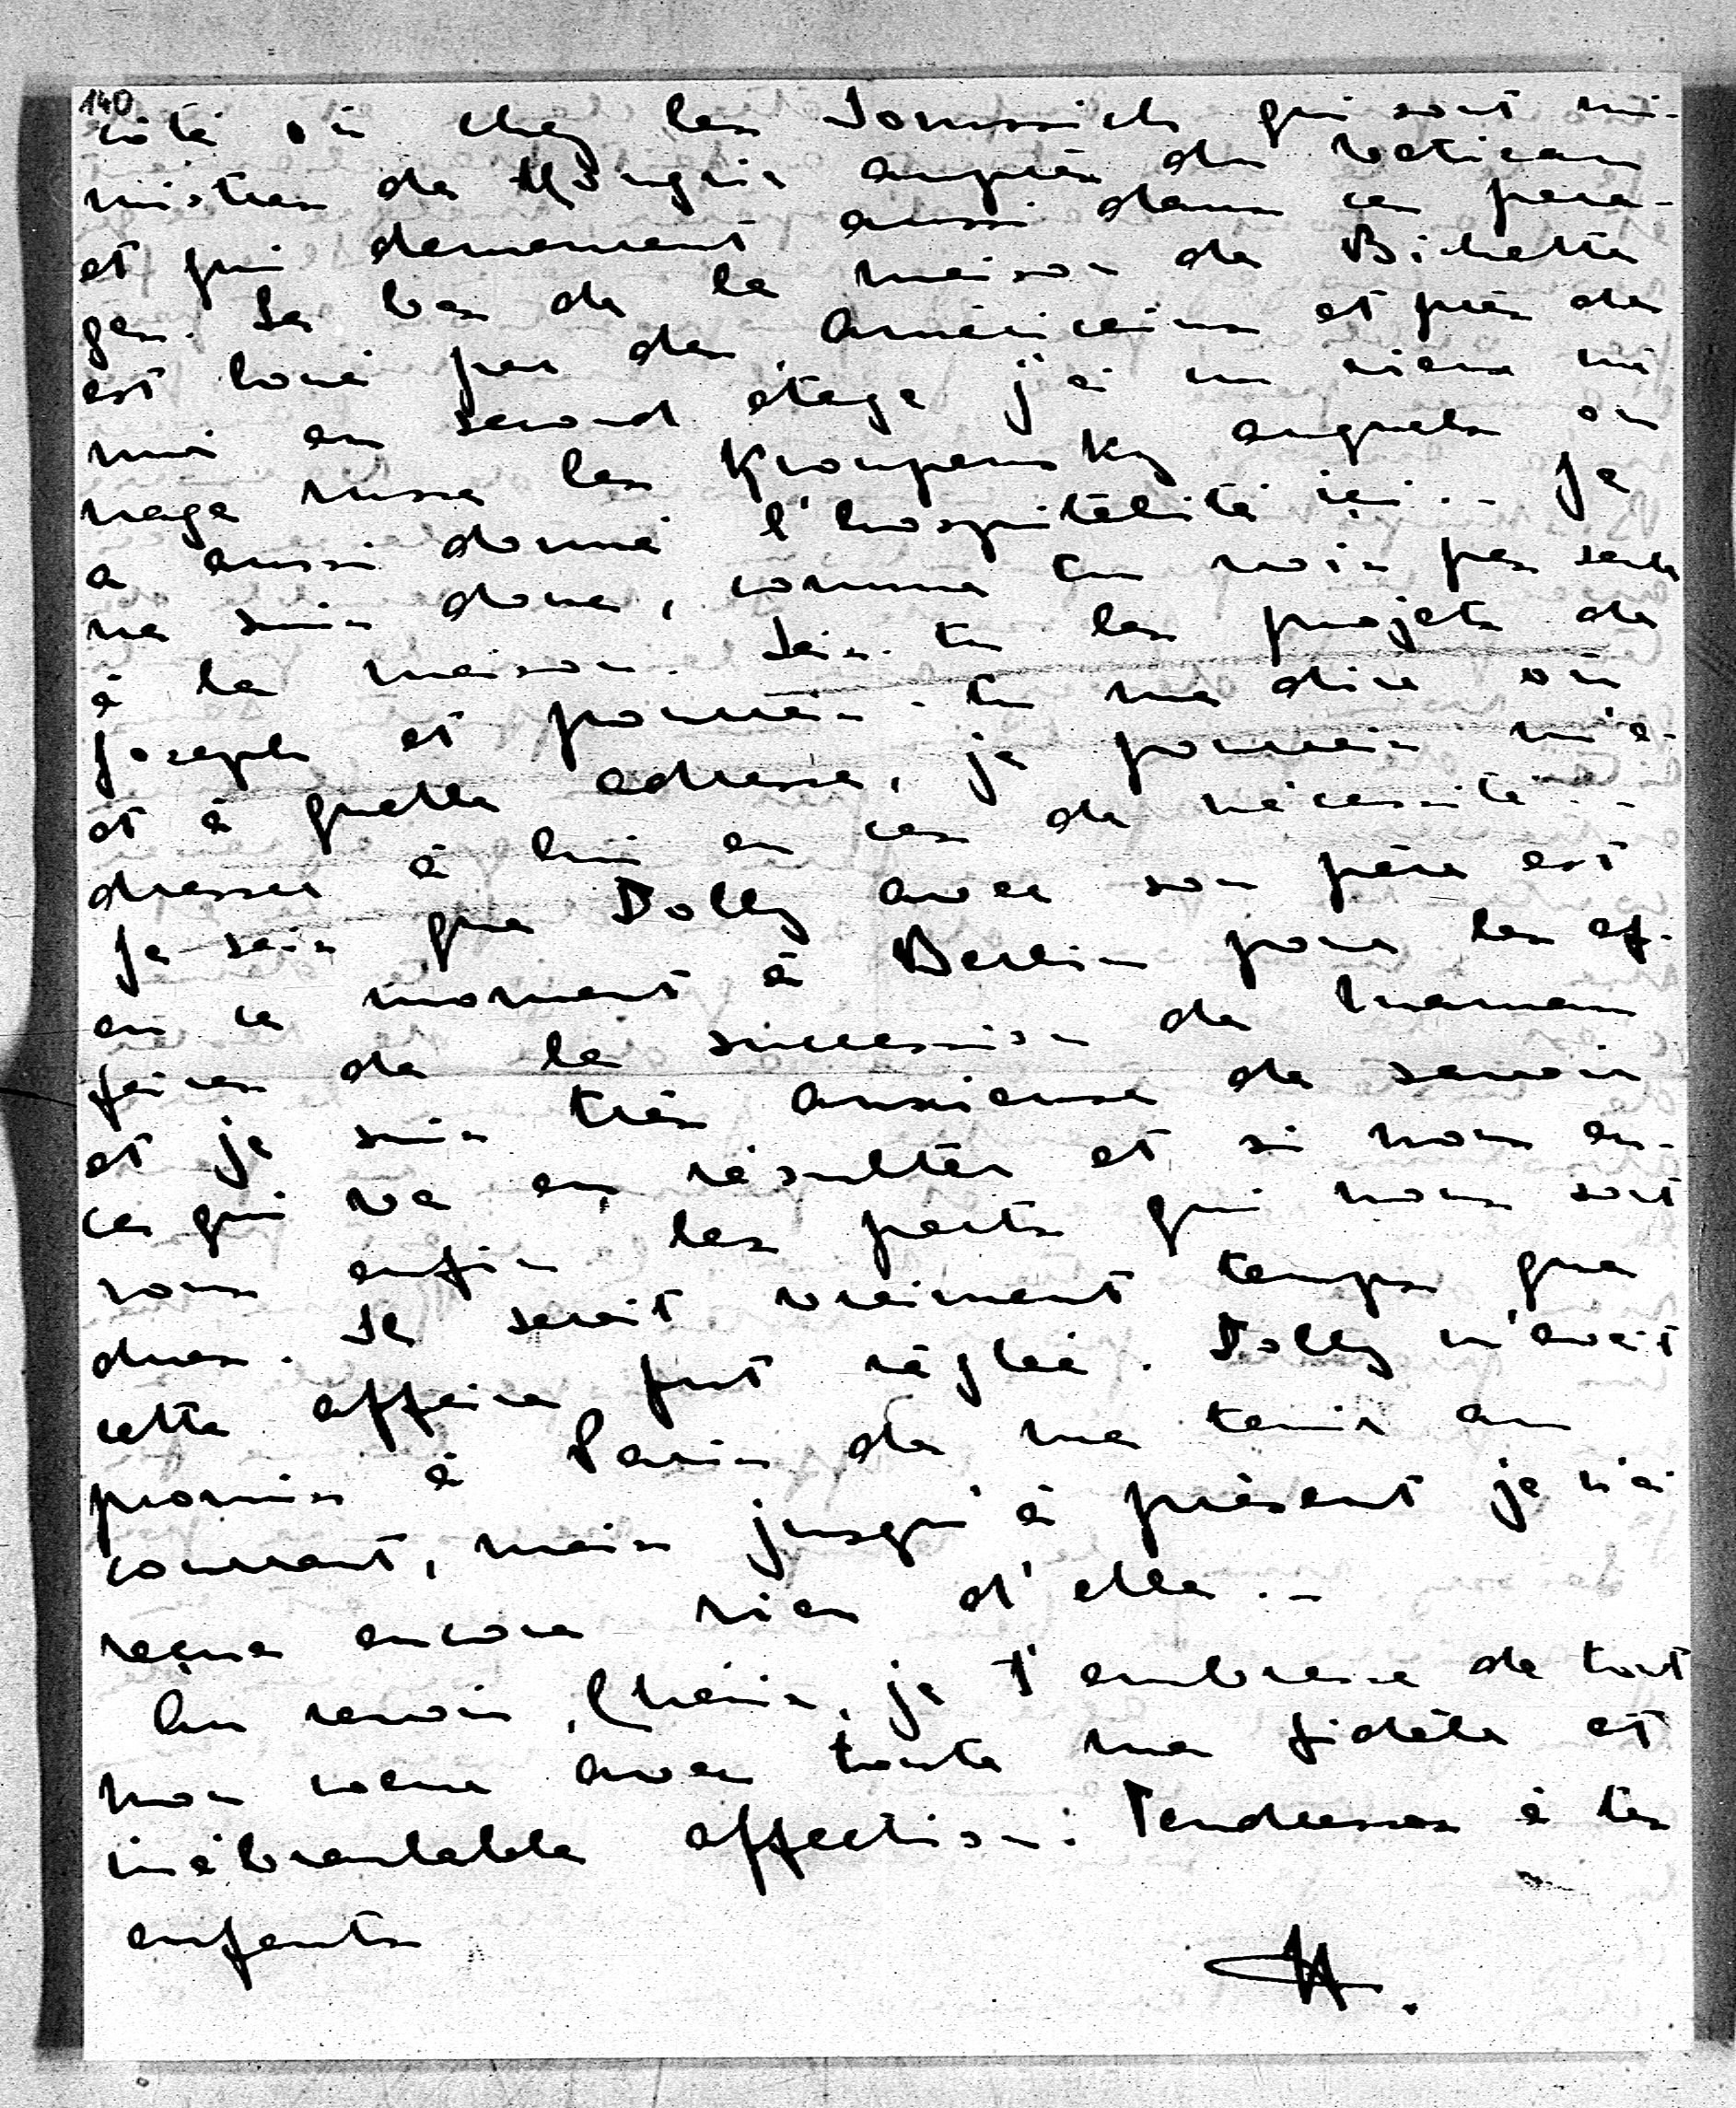 140
cité où chez les Somssich qui sont mi-
nistres de Hongrie auprès du Vatican
et qui demeurent aussi dans ces para-
ges. Le bas de la maison de Bichette
est loué par des Américains et près de
moi au second étage j'ai un vieux mé
nage russe les Kroupensky auquels on
a aussi donné l'hospitalité ici.- Je
ne suis donc, comme tu vois pas seule
à la maison. Sais tu les projets de
Joseph et pourrais-tu me dire où
et à quelle adresse, je pourrais m'a-
dresser à lui en cas de nécessité.-
Je sais que Dolly avec son père est
en ce moment à Berlin pour les af-
faires de la succession de Maman
et je suis très anxieuse de savoir
ce qui va en résulter et si nous au-
rons enfin les parts qui nous sont
dues. Il serait vraiment temps que
cette affaire fut réglée. Dolly m'avait
promis à Paris de me tenir au
courant, mais jusqu'à présent je n'ai
reçue encore rien d'elle.-
Au revoir, Chérie, je t'embrasse de tout
mon coeur avec toute ma fidèle et
inébranlable affection: Tendresses à tes
enfants